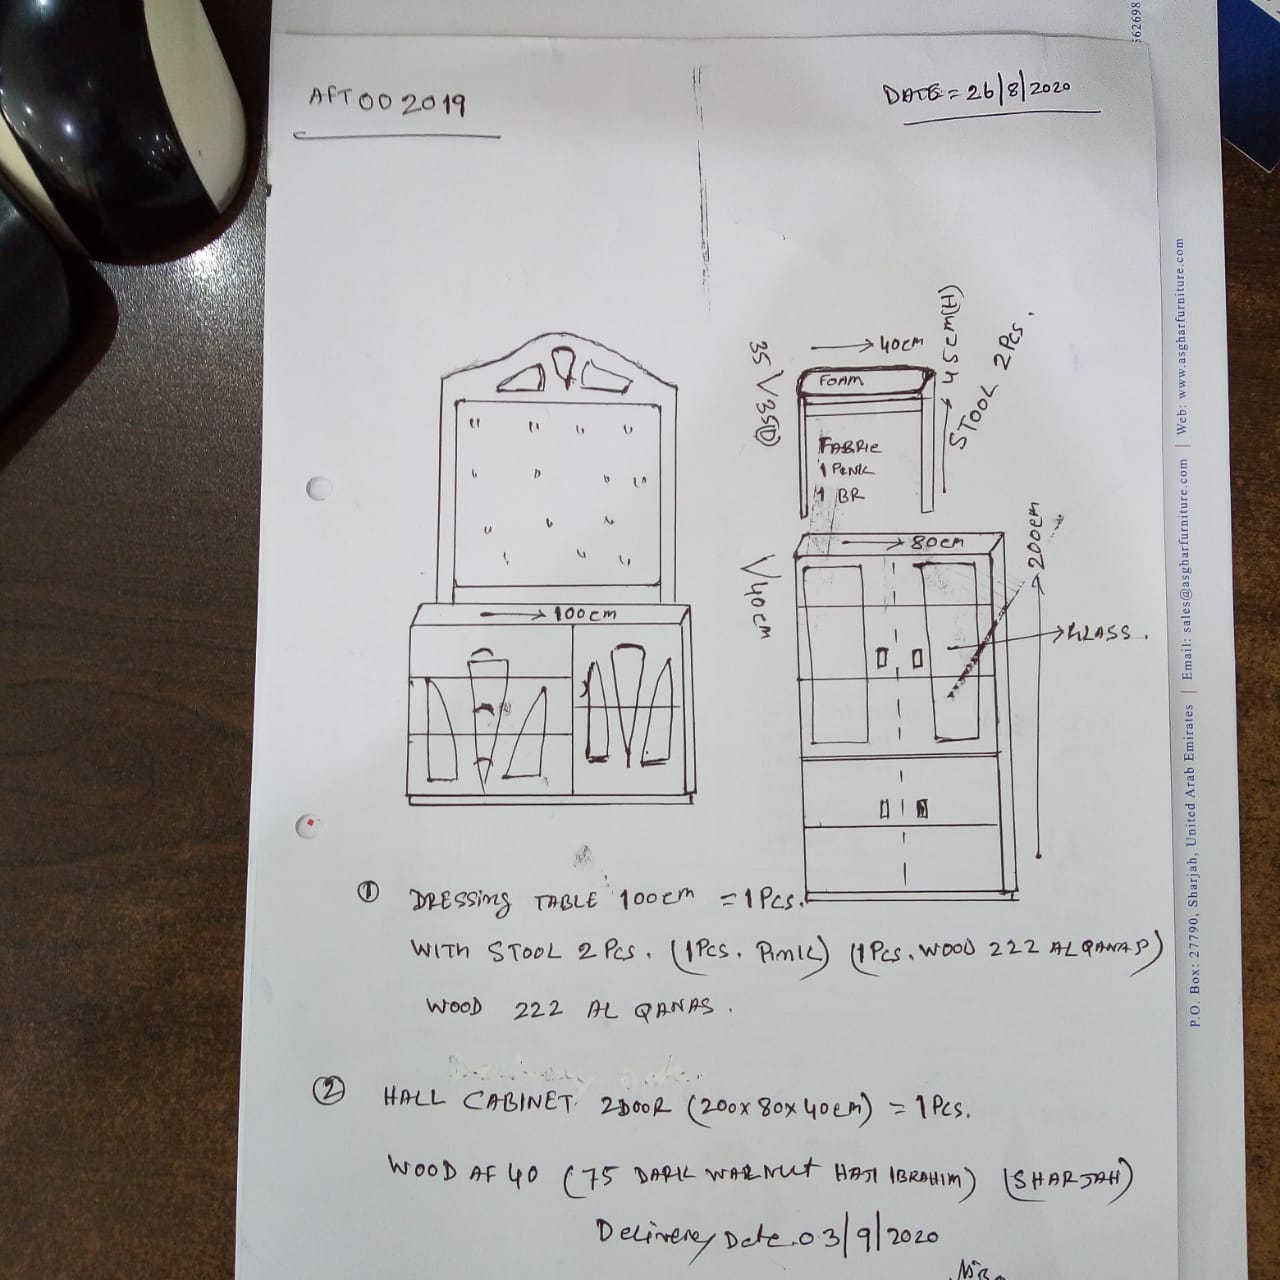 AFT 00 2019
DATE = 26/8/2020
→ 40cm
FOAM
45cm(H)
STOOL 2Pcs.
35
FABRIC
1 PINK
1 BR
→ 80cm
200cm
40cm
→ GLASS.
→ 100cm
① DRESSING TABLE 100cm = 1Pcs.
WITH STOOL 2 Pcs. (1Pcs. Pink) (1Pcs. WOOD 222 AL QANAS)
WOOD 222 AL QANAS.
② HALL CABINET 2DOOR (200x80x40cm) = 1Pcs.
WOOD AF 40 (75 DARK WARNUT HAJI IBRAHIM) (SHARJAH)
Delivery Date. 03/9/2020
P.O. Box: 27790, Sharjah, United Arab Emirates | Email: sales@asgharfurniture.com | Web: www.asgharfurniture.com